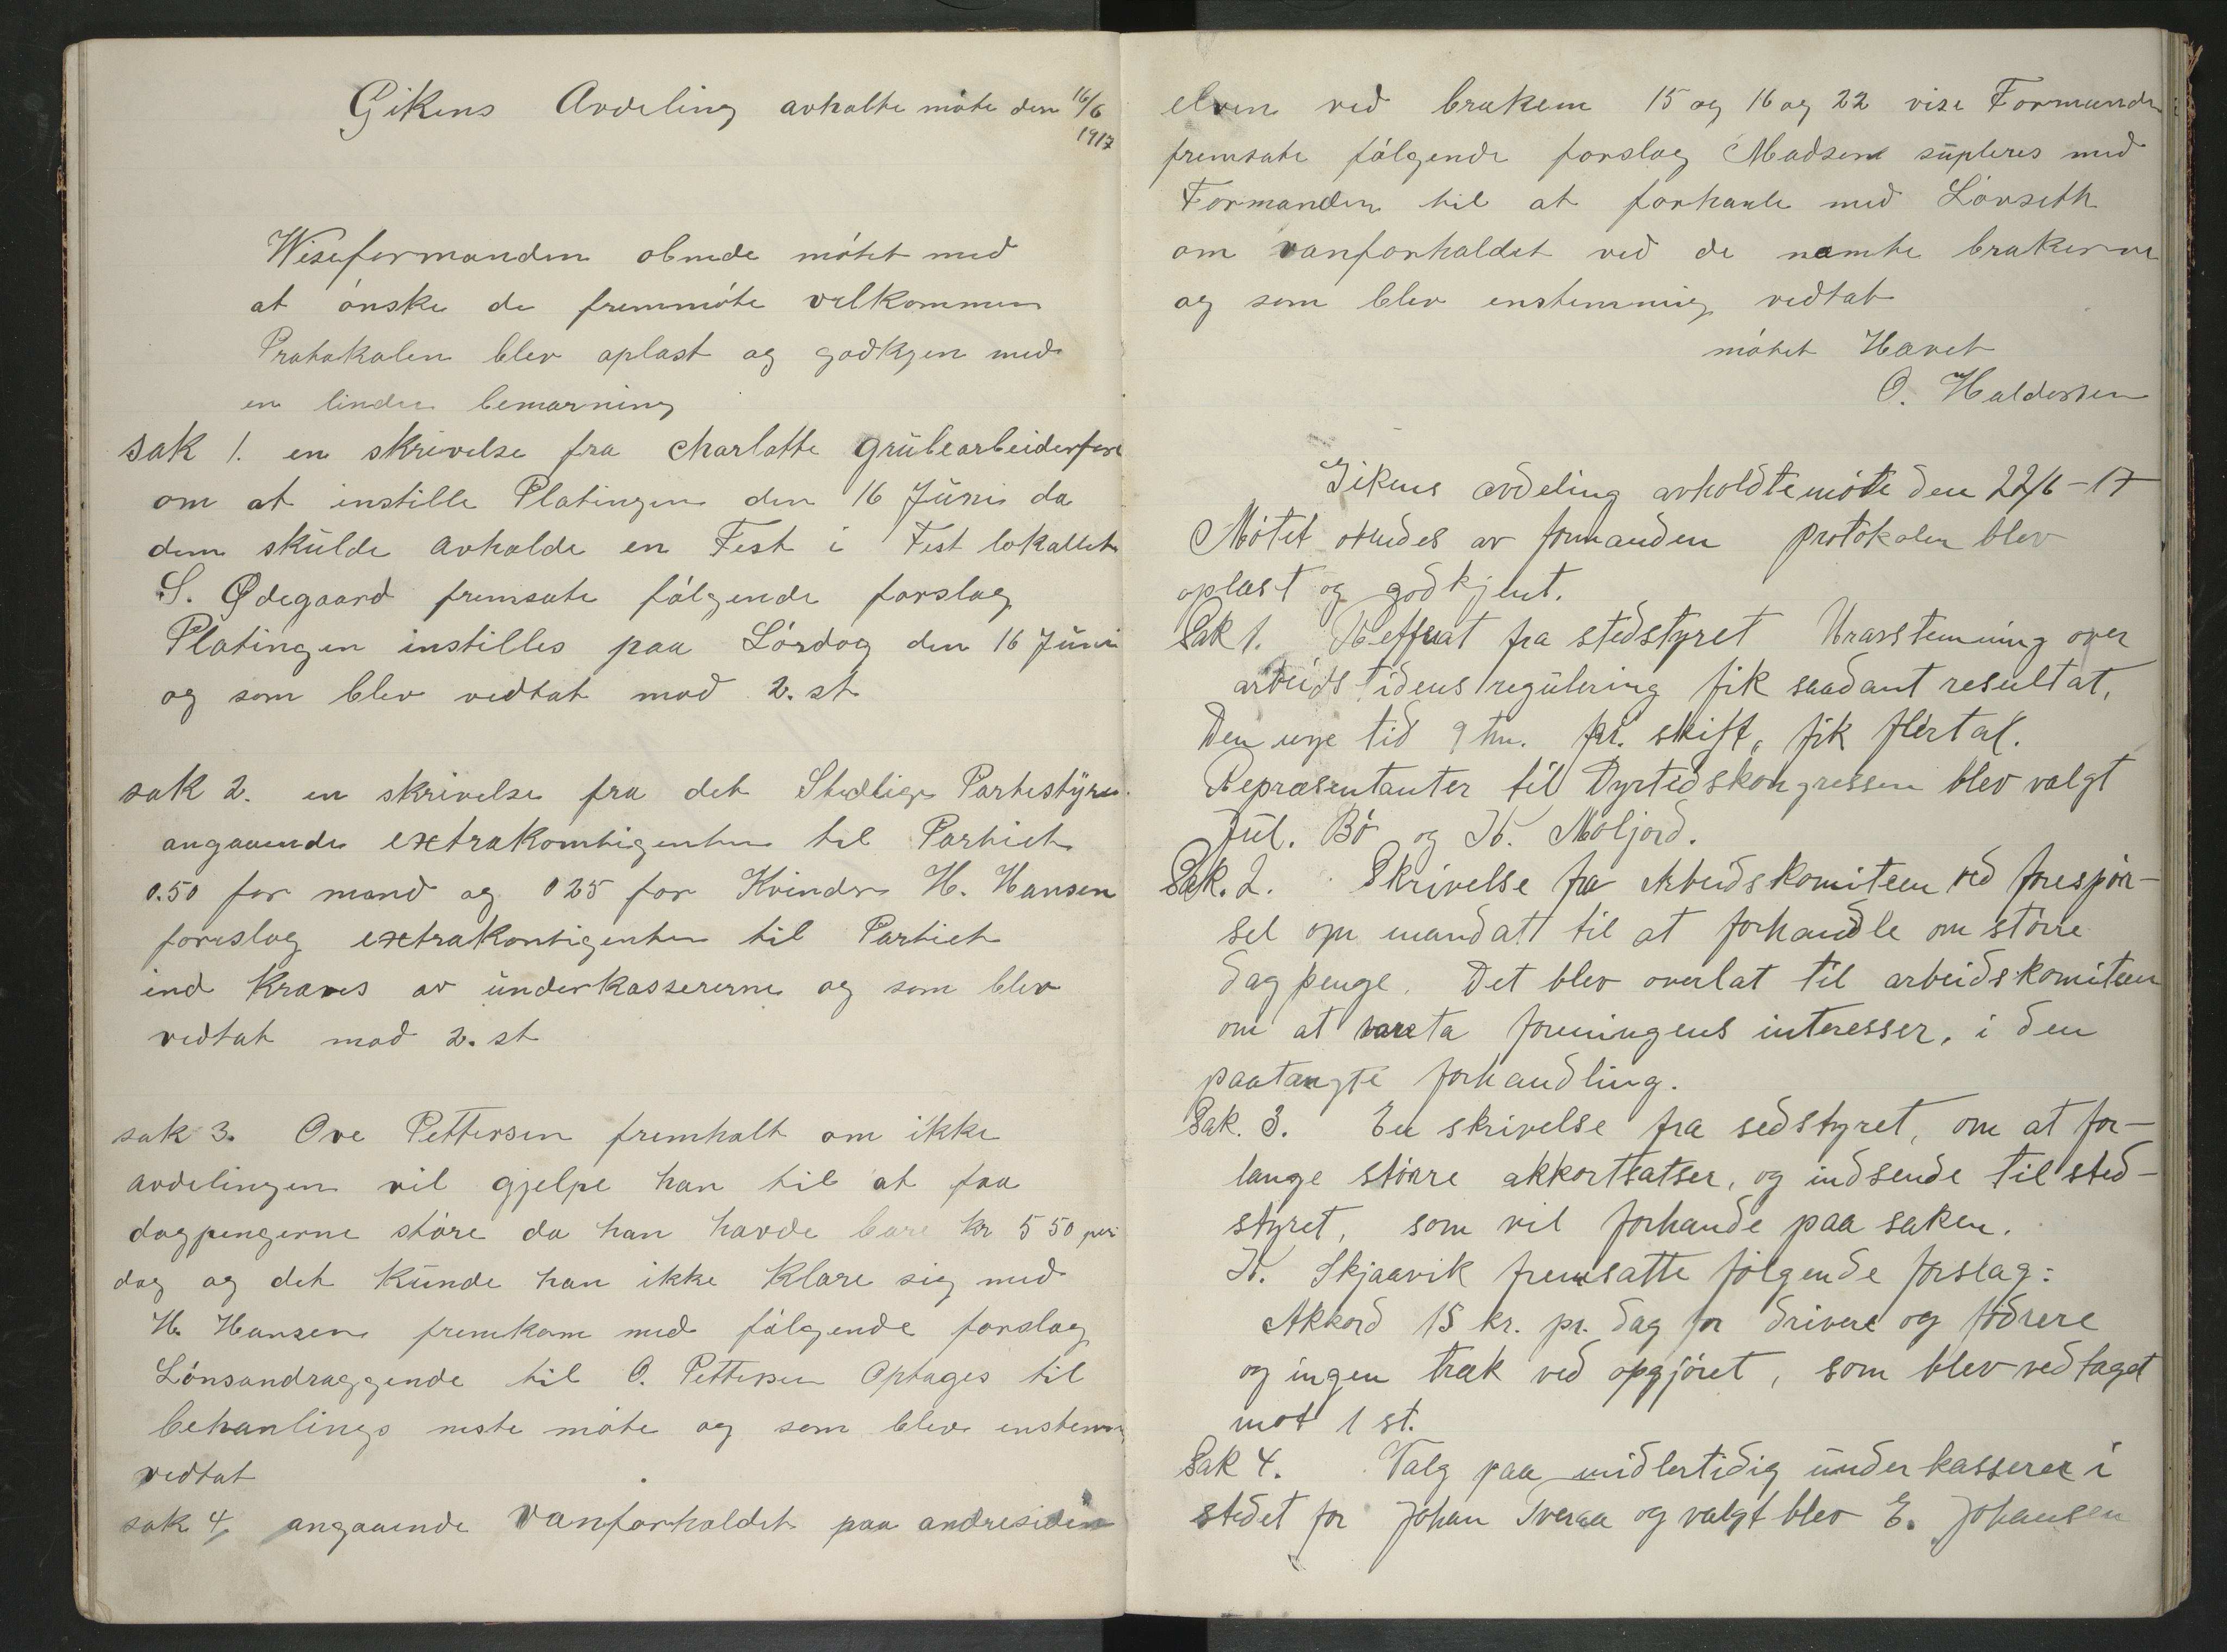 Gikens Avdeling avholte møte den 16/6
1917
Wiseformanden obnede møtet med
at ønske de fremmøte velkommen
Protokolen blev oplast og godkjen med
en linden bemærning
sak 1. en skrivelse fra Charlotte grübearbeiderfore
om at instille Platingen den 16 Jüni da
dem skülde avholde en Fest i Fest lokallet
S. Ødegaard fremsate følgende forslag
Platingen instilles paa Lørdag den 16 Jüni
og som blev vedtat mod 2. st
sak 2. en skrivelse fra det Stedlige Partestÿre
angaaende extrakomtigenten til Partiet
0.50 for mand og 0 25 for Kvinder H. Hansen
forslog extrakontigenten til Partiet
ind kraves av ünderkassererne og som blev
vedtat mod 2. st
sak 3. Ove Pettersen fremholt om ikke
avdelingen vil gjelpe han til at faa
dagpengerne støre da han havde bare kr 5 50 per
dag og det Künde han ikke klare sig med
H. Hansen fremkom med følgende forslag
Lønsandraggende til O. Pettersen Optages til
behanlings neste møte og som blev enstemi
vedtat
sak 4, angaaende vanforholdet paa andresiden
elven ved brakem 15 og 16 og 22 vise Formanden
fremsate følgende forslag Madsen süpleres med
Formanden til at forhanle med Lövseth
om vanforholdet ved de næmte brakerne
og som blev enstemmig vedtat
møtet Hævet
O. Haldorsen
Gikens avdeling avholdte møte den 22/6-17
Møtet obnedes av formanden protokolen blev
oplæst og godkjent.
Sak 1. Refferat fra stedstyret Uravstemning over
arbeidstidens regülering fik saadant resultat,
Den nye tid 9 tm. pr. skift, fik flertal.
Repræsentanter til Dyrtidskongressen blev valgt
Jül. Bø og K. Moljord.
Sak. 2. Skrivelse fra Arbeidskomiteen ved forespør-
sel om mandatt til at forhandle om større
dagpenge. Det blev overlat til arbeidskomiteen
om at vareta foreningens interesser, i den
paatængte forhandling.
Sak. 3. En skrivelse fra sedstyret, om at for-
lange større akkortsatser, og indsende til sted-
styret, som vil forhande paa saken.
K. Skjaavik fremsatte følgende forslag:
Akkord 15 kr. pr. dag for drivere og fødrere
og ingen træk ved opgjøret, som blev vedtaget
mot 1 st.
Sak 4. Valg paa midlertidig ünderkasserer i
stedet for Johan Sveraa og valgt blev E. Johansen